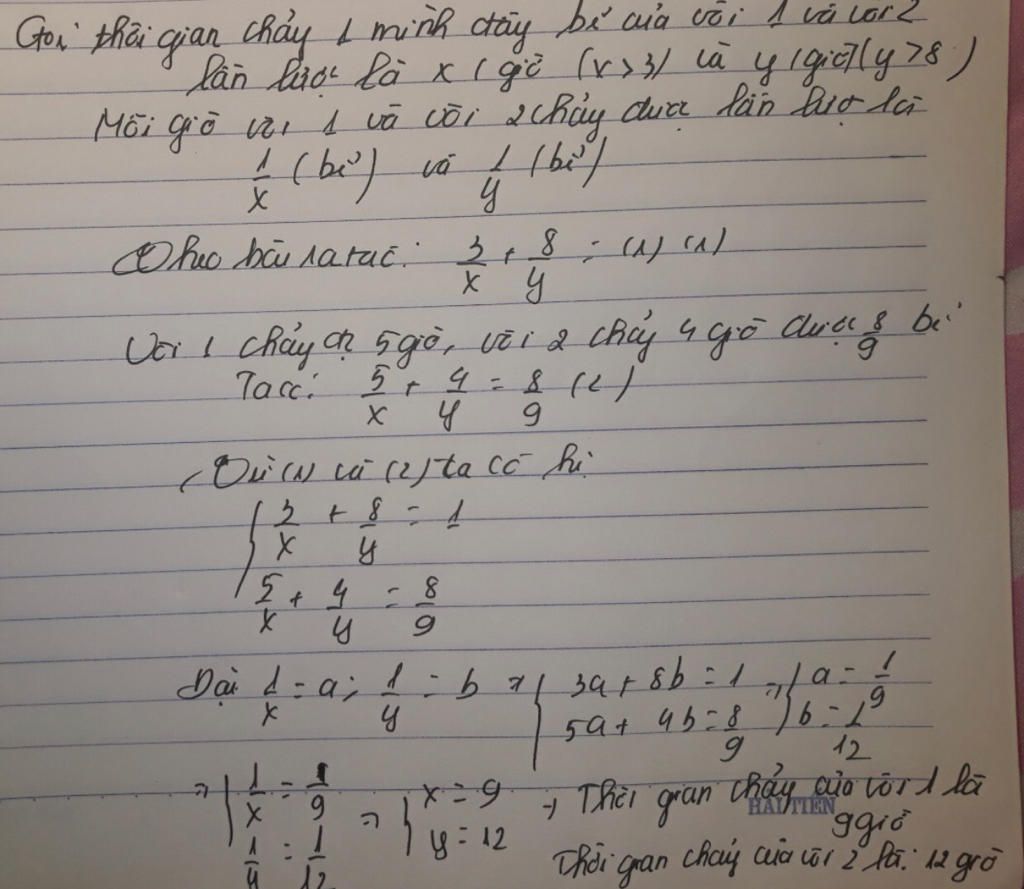 Gọi thời gian chảy 1 mình đầy bể của vòi 1 và vòi 2
lần lượt là x (giờ) (x > 3) và y (giờ) (y > 8)
Mỗi giờ vòi 1 và vòi 2 chảy được lần lượt là
1/x (bể) và 1/y (bể)
Theo bài ra ta có: 3/x + 8/y = (1) (1)
Vòi 1 chảy 5 giờ, vòi 2 chảy 4 giờ được 8/9 bể
Ta có: 5/x + 4/y = 8/9 (2)
Từ (1) và (2) ta có hệ:
{ 3/x + 8/y = 1
5/x + 4/y = 8/9
Đặt 1/x = a; 1/y = b => { 3a + 8b = 1 => { a = 1/9
5a + 4b = 8/9 b = 1/12
=> { 1/x = 1/9 => { x = 9 => Thời gian chảy của vòi 1 là
HẢI TIẾN
9 giờ
1/y = 1/12 y = 12
Thời gian chảy của vòi 2 là: 12 giờ